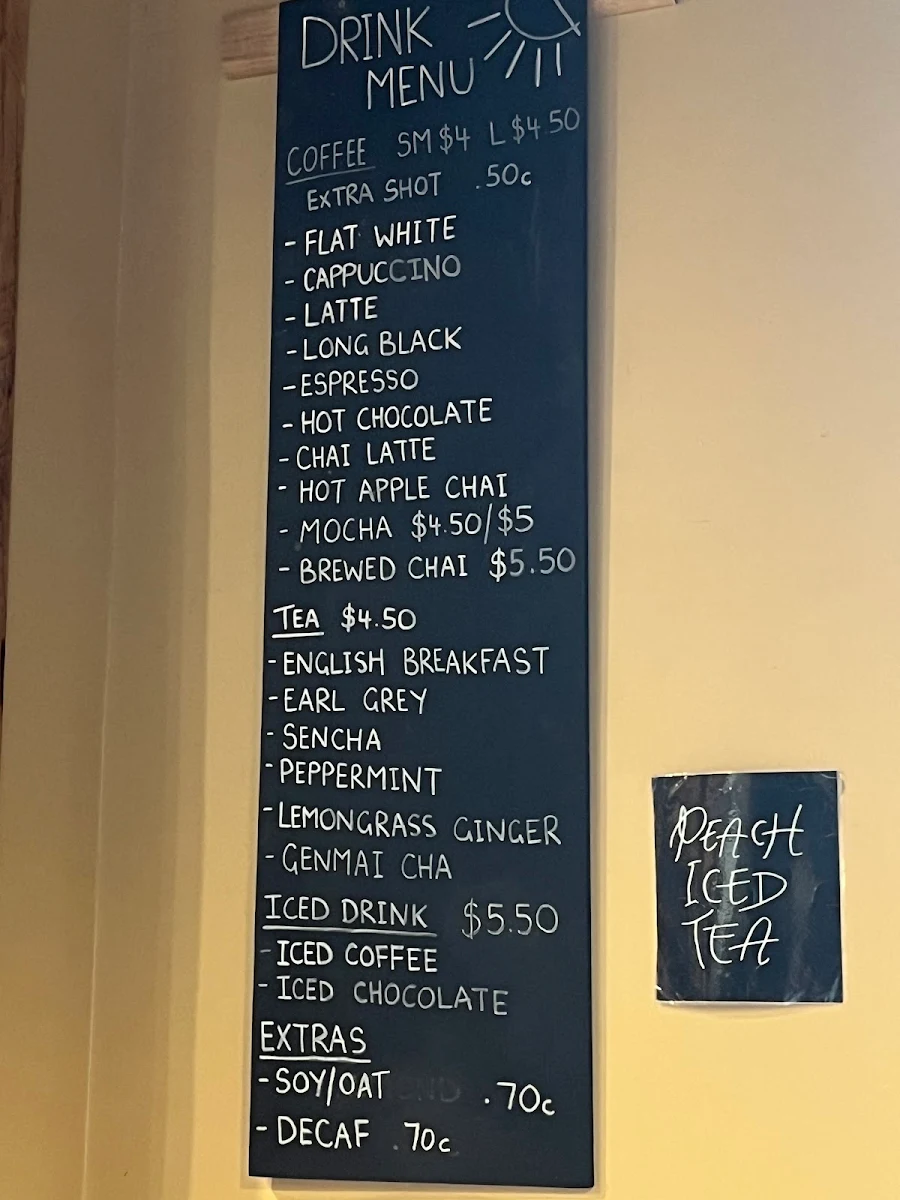 DRINK
MENU
COFFEE SM $4 L $4.50
EXTRA SHOT .50c
- FLAT WHITE
- CAPPUCCINO
- LATTE
- LONG BLACK
- ESPRESSO
- HOT CHOCOLATE
- CHAI LATTE
- HOT APPLE CHAI
- MOCHA $4.50/$5
- BREWED CHAI $5.50
TEA $4.50
- ENGLISH BREAKFAST
- EARL GREY
- SENCHA
- PEPPERMINT
- LEMONGRASS GINGER
- GENMAI CHA
ICED DRINK $5.50
- ICED COFFEE
- ICED CHOCOLATE
EXTRAS
- SOY/OAT .70c
- DECAF .70c
PEACH
ICED
TEA